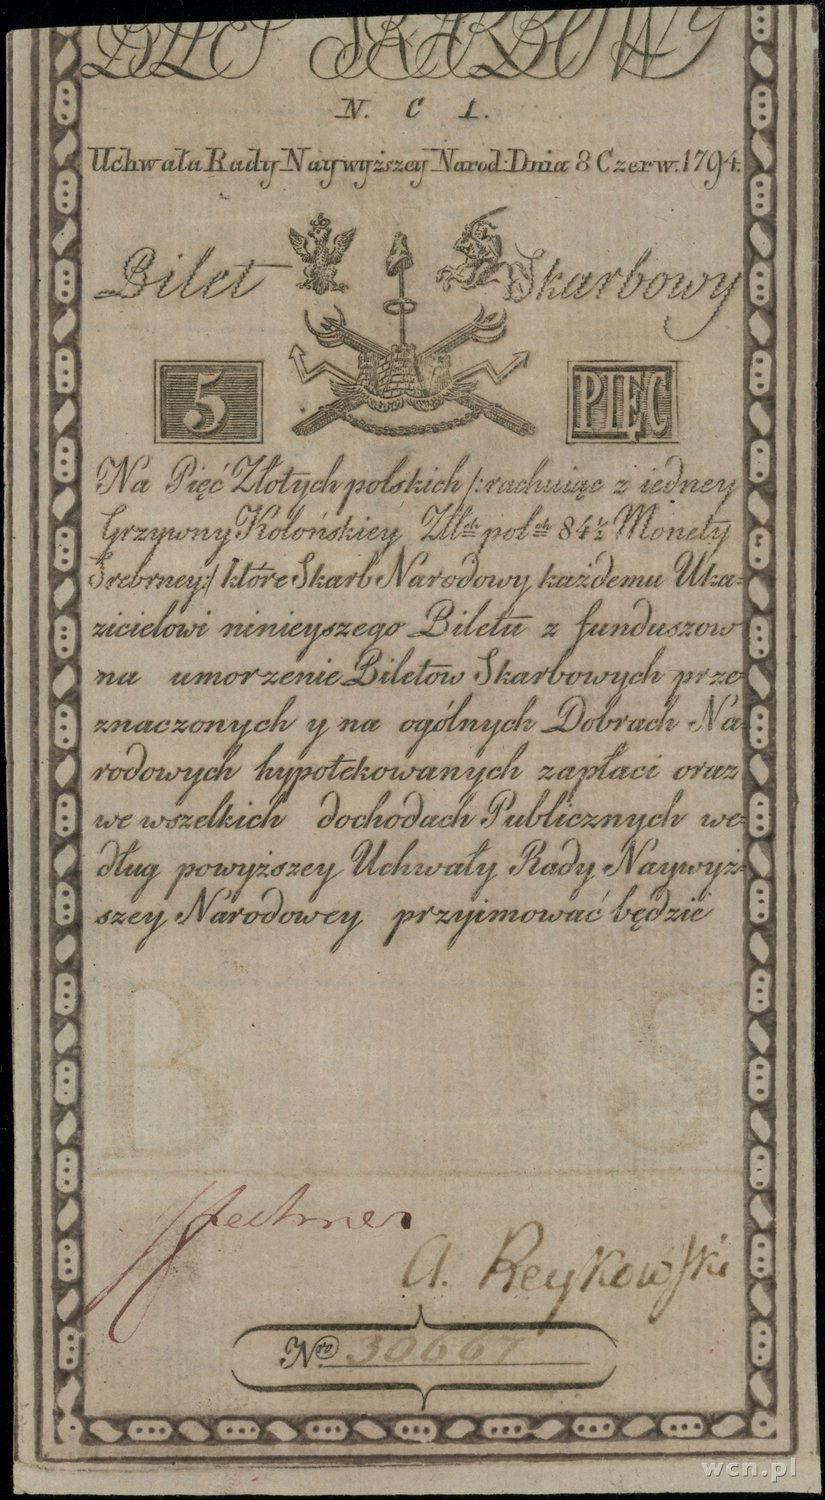 BILET SKARBOWY
N. C 1.
Uchwała Rady Naywyższey Narod: Dnia 8 Czerw: 1794.
Bilet Skarbowy
5 PIĘC
Na Pięć Złotych polskich /: rachuiąc z iedney
Grzywny Kolońskiey Złł:ch pol:ch 84½ Monety
Srebrney :/ które Skarb Narodowy każdemu Uka=
zicielowi ninieyszego Biletu z funduszow
na umorzenie Biletow Skarbowych prze=
znaczonych y na ogólnych Dobrach Na=
rodowych hypotekowanych zapłaci oraz
we wszelkich dochodach Publicznych we=
dług powyższey Uchwały Rady Naywyż=
szey Narodowey przyimować będzie
B S
Fechner
A. Reykowski
Nro 30667
wcn.pl